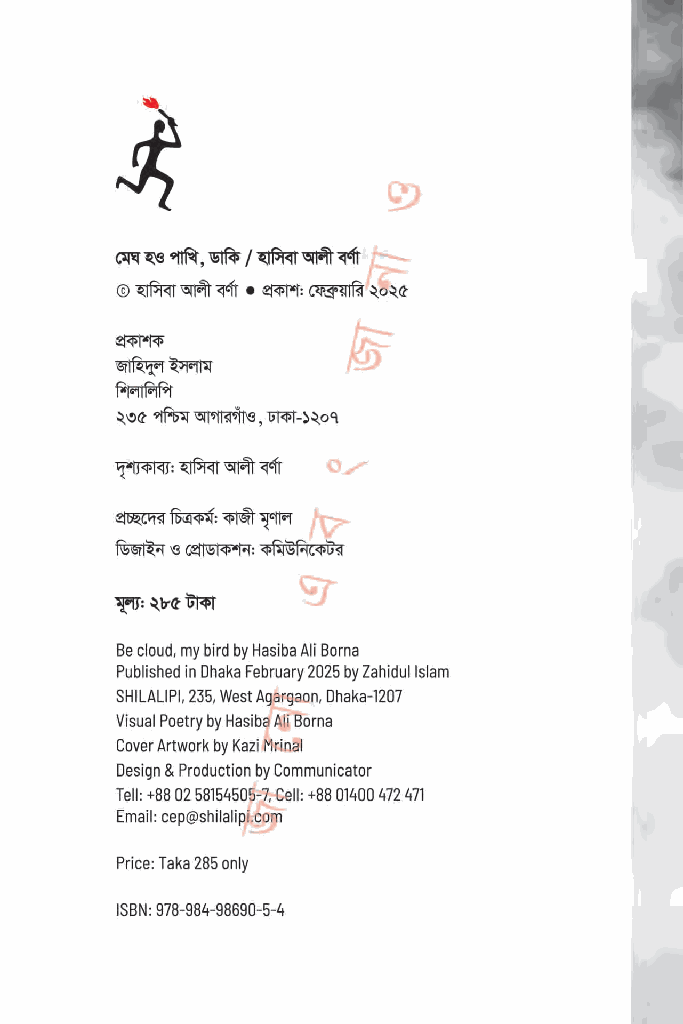 মেঘ হও পাখি, ডাকি / হাসিবা আলী বর্ণা
© হাসিবা আলী বর্ণা ● প্রকাশ: ফেব্রুয়ারি ২০২৫
প্রকাশক
জাহিদুল ইসলাম
শিলালিপি
২৩৫ পশ্চিম আগারগাঁও, ঢাকা-১২০৭
দৃশ্যকাব্য: হাসিবা আলী বর্ণা
প্রচ্ছদের চিত্রকর্ম: কাজী মৃণাল
ডিজাইন ও প্রোডাকশন: কমিউনিকেটর
মূল্য: ২৮৫ টাকা
Be cloud, my bird by Hasiba Ali Borna
Published in Dhaka February 2025 by Zahidul Islam
SHILALIPI, 235, West Agargaon, Dhaka-1207
Visual Poetry by Hasiba Ali Borna
Cover Artwork by Kazi Mrinal
Design & Production by Communicator
Tell: +88 02 58154505-7, Cell: +88 01400 472 471
Email: cep@shilalipi.com
Price: Taka 285 only
ISBN: 978-984-98690-5-4
জানো এবং জানাও